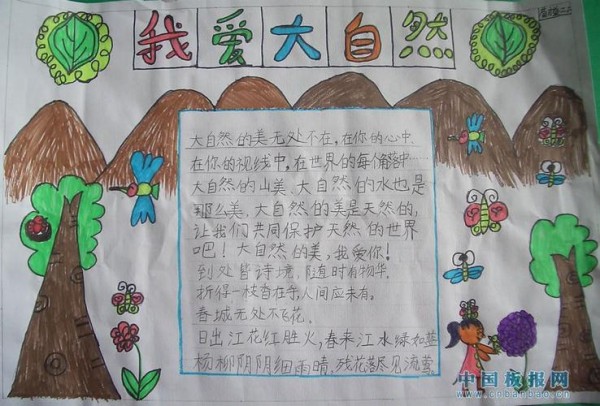 我爱大自然
大自然的美无处不在,在你的心中,
在你的视线中,在世界的每个角落中
大自然的山美、大自然的水也是
那么美,大自然的美是天然的,
让我们共同保护天然的世界
吧!大自然的美,我爱你!
到处皆诗境,随时有物华,
折得一枝香在手,人间应未有。
春城无处不飞花,
日出江花红胜火,春来江水绿如蓝
杨柳阴阴细雨晴,残花落尽见流莺
中国板报网
www.cnbanbao.cn